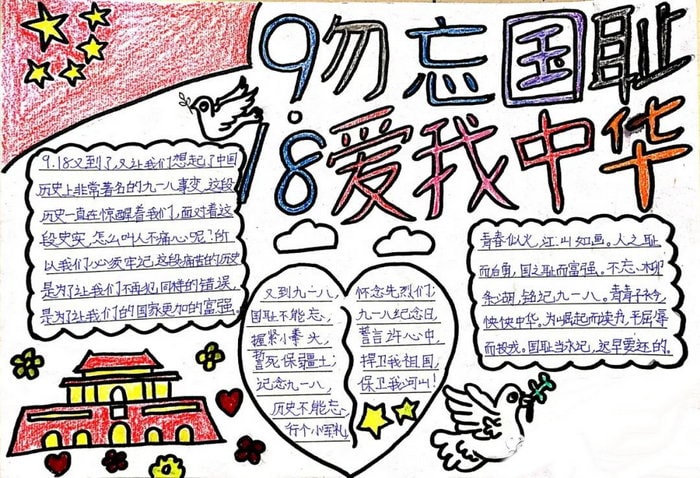 9.18
勿忘国耻
爱我中华
9.18又到了,又让我们想起了中国
历史上非常著名的九一八事变,这段
历史一直在惊醒着我们,面对着这
段史实,怎么叫人不痛心呢!所
以我们必须牢记这段痛苦的历史
是为了让我们不再犯同样的错误,
是为了让我们的国家更加的富强。
又到九一八,
国耻不能忘、
握紧小拳头,
誓死保疆土;
纪念九一八,
历史不能忘、
行个小军礼,
怀念先烈们;
九一八纪念日,
誓言许心中,
捍卫我祖国,
保卫我河山!
青春似火,江山如画。人之耻
而自勇,国之耻而富强。不忘柳
条湖,铭记九一八。青青子衿,
怏怏中华。为崛起而读书,千屈辱
而投戎。国耻当永记,迟早要还的。